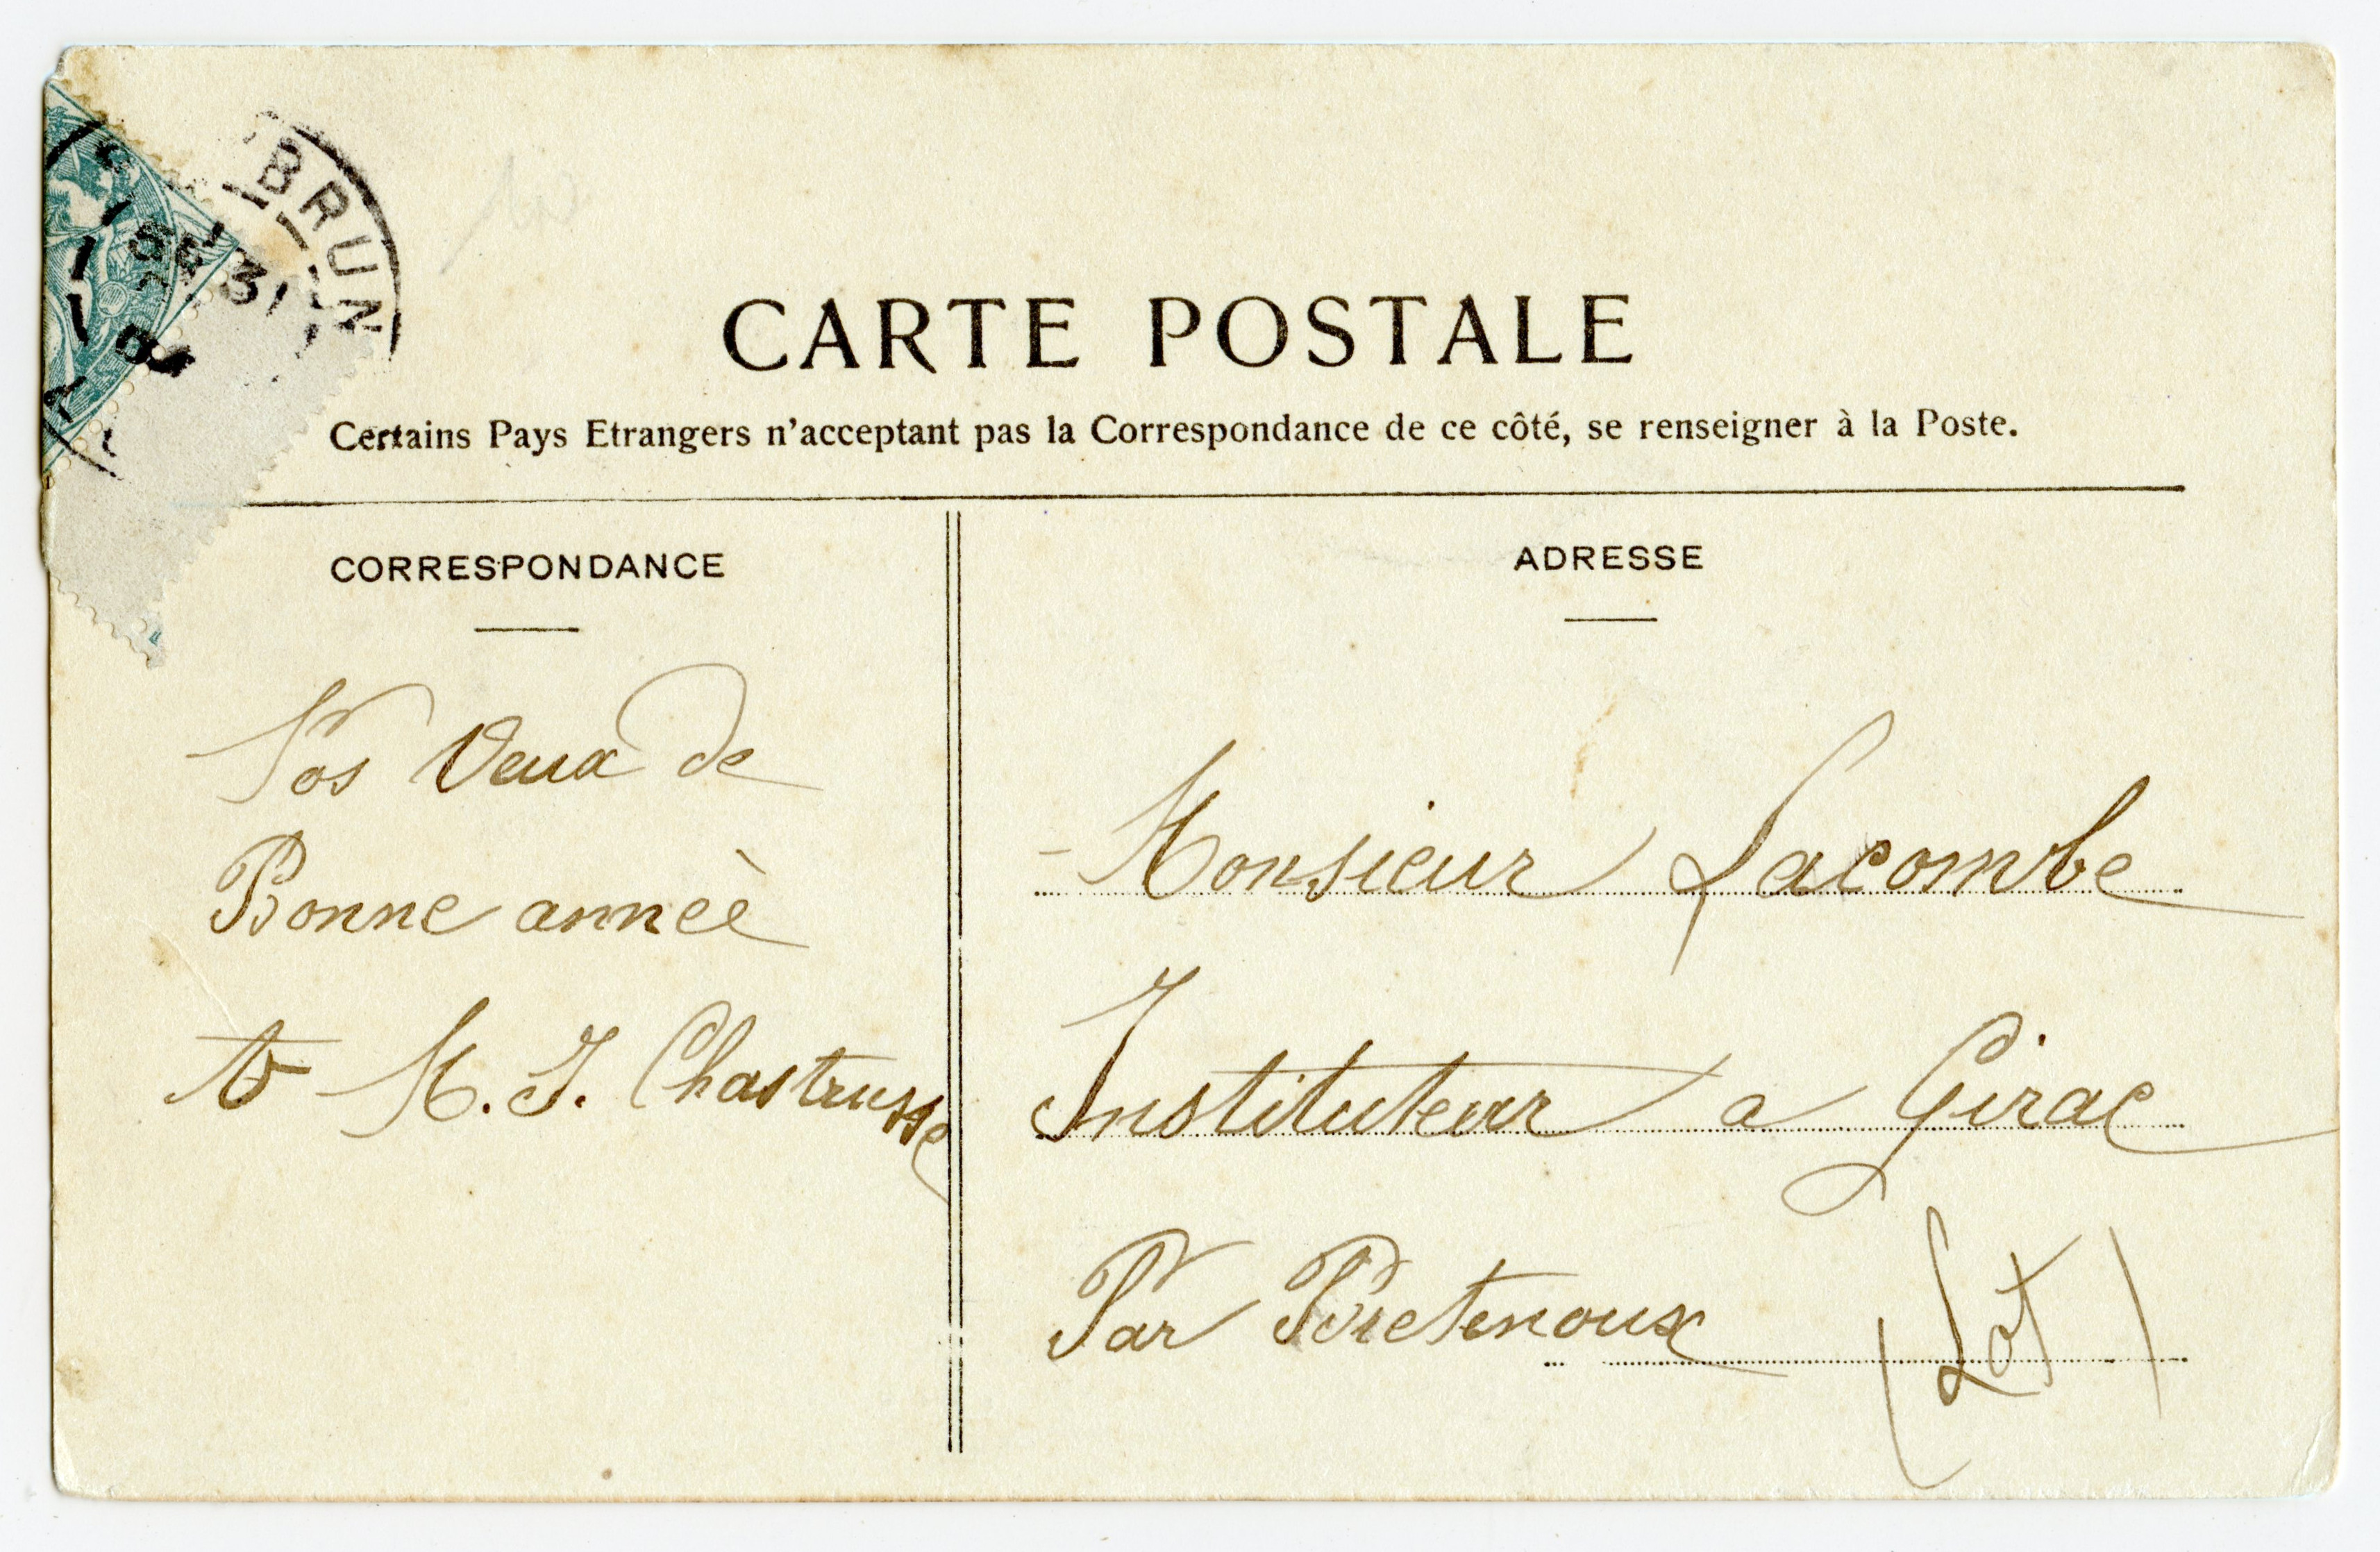 BRUN
31
CARTE POSTALE
Certains Pays Etrangers n'acceptant pas la Correspondance de ce côté, se renseigner à la Poste.
CORRESPONDANCE
Nos Veux de
Bonne anneè
M. J. Chastrusse
ADRESSE
- Monsieur Lacombe
Instituteur a Girac
Par Bretenoux (Lot)